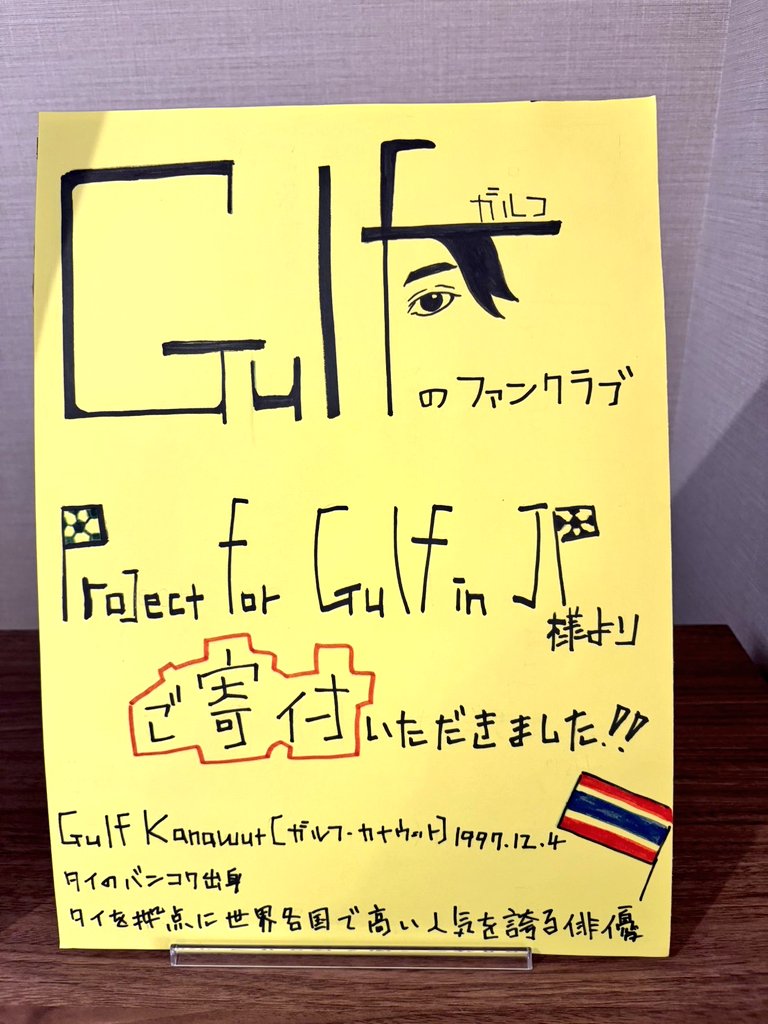 ガルフ
Gulf
のファンクラブ
Project for Gulf in JP
様より
ご寄付いただきました!!
Gulf Kanawut [ガルフ・カナウット] 1997.12.4
タイのバンコク出身
タイを拠点に世界各国で高い人気を誇る俳優